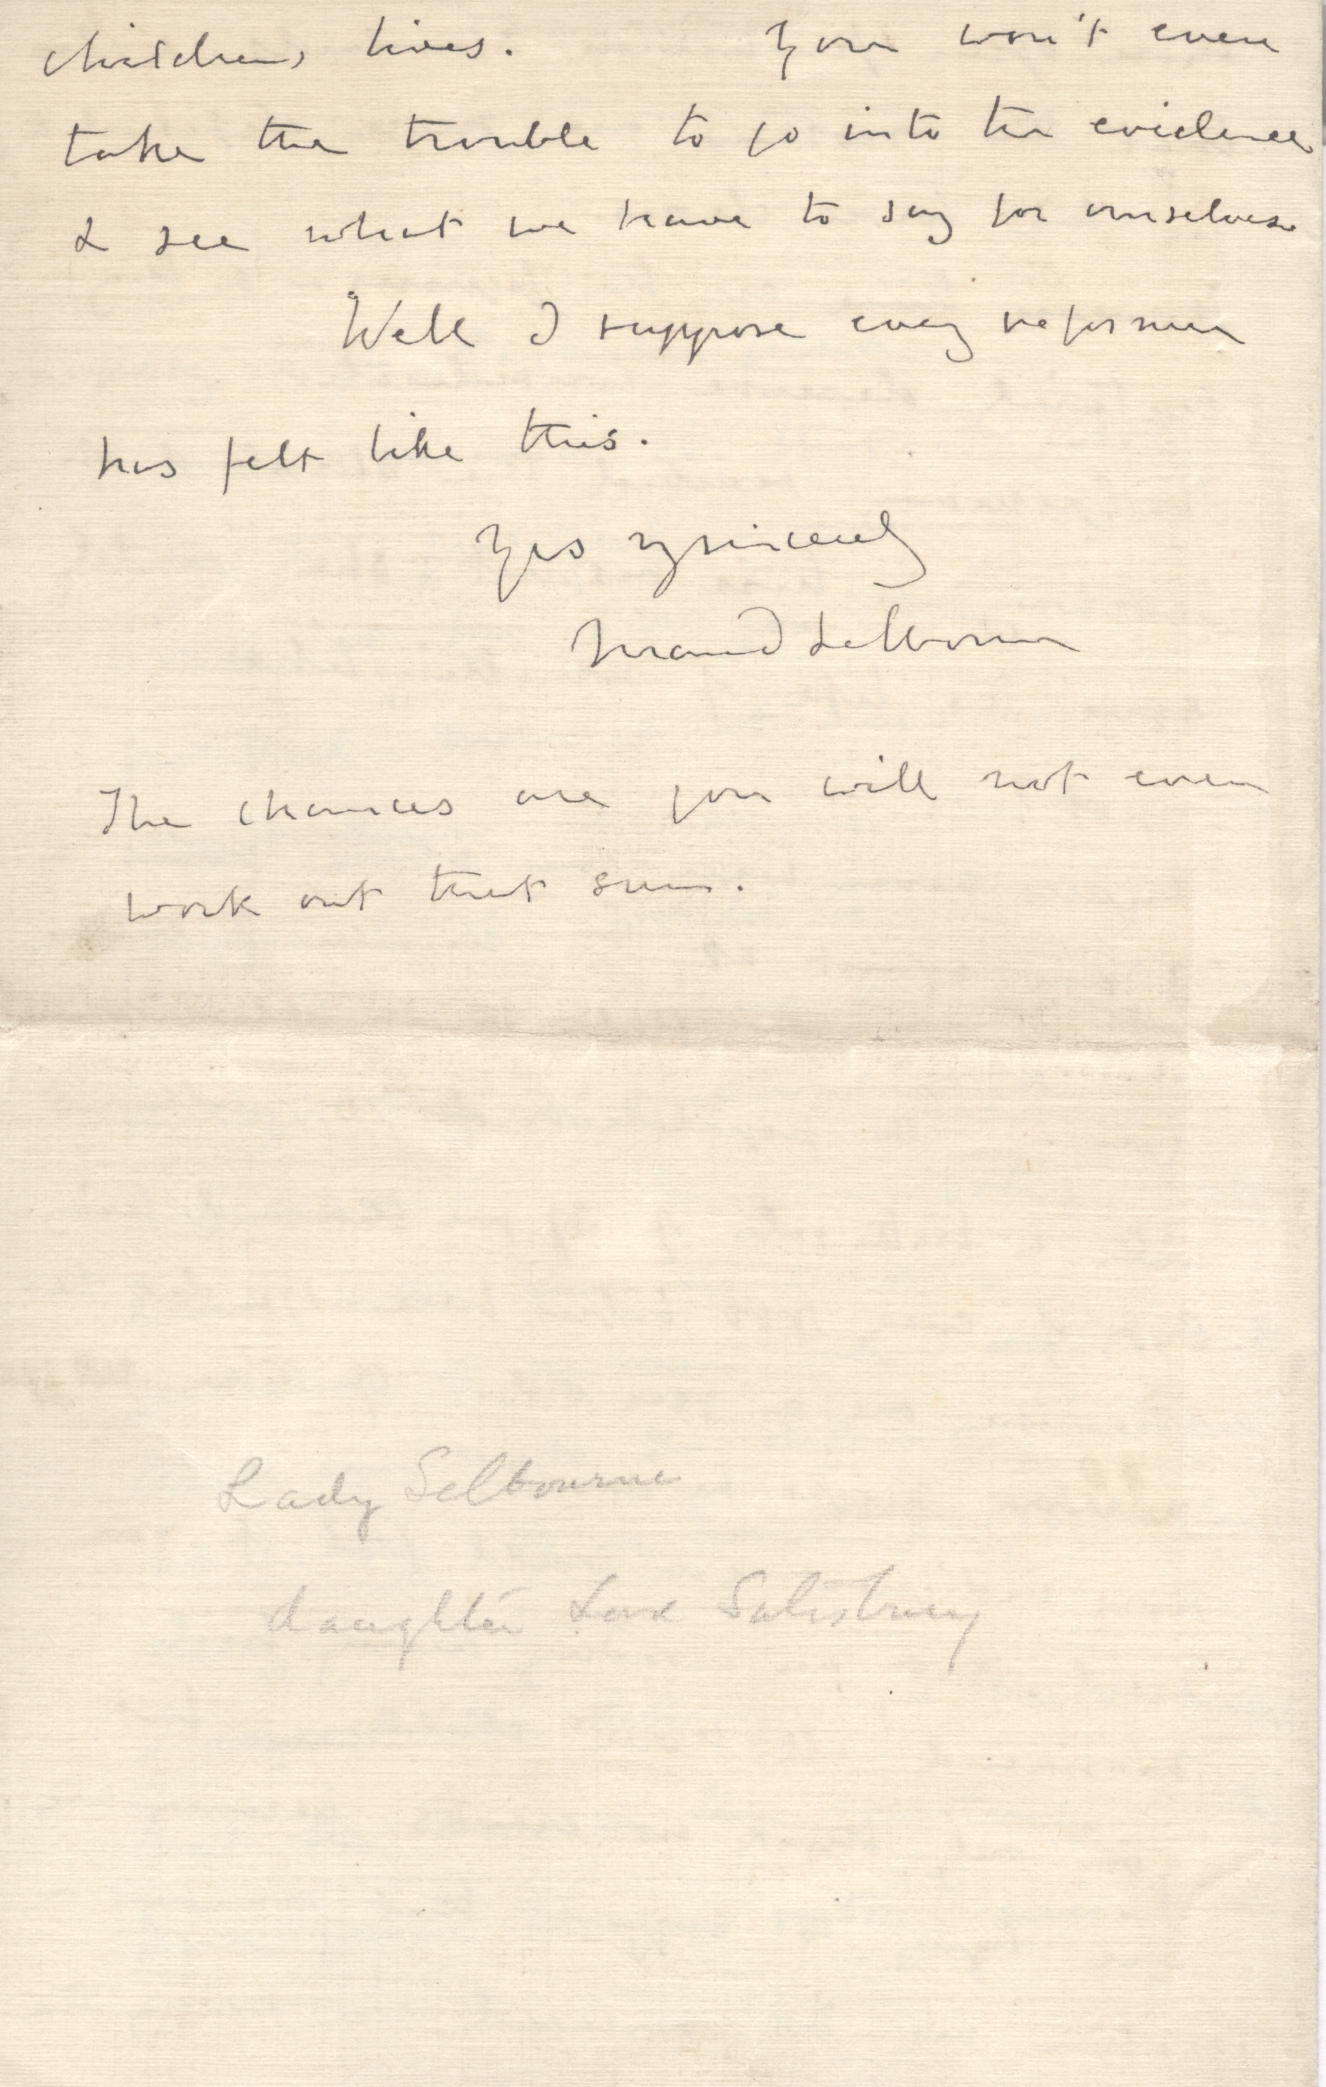 childrens lives. You won't even
take the trouble to go into the evidence
& see what we have to say for ourselves.
Well I suppose every reformer
has felt like this.
Yrs vy sincerely
Maud Selborne
The chances are you will not even
work out that sum.
Lady Selbourne
daughter Lord Salisbury